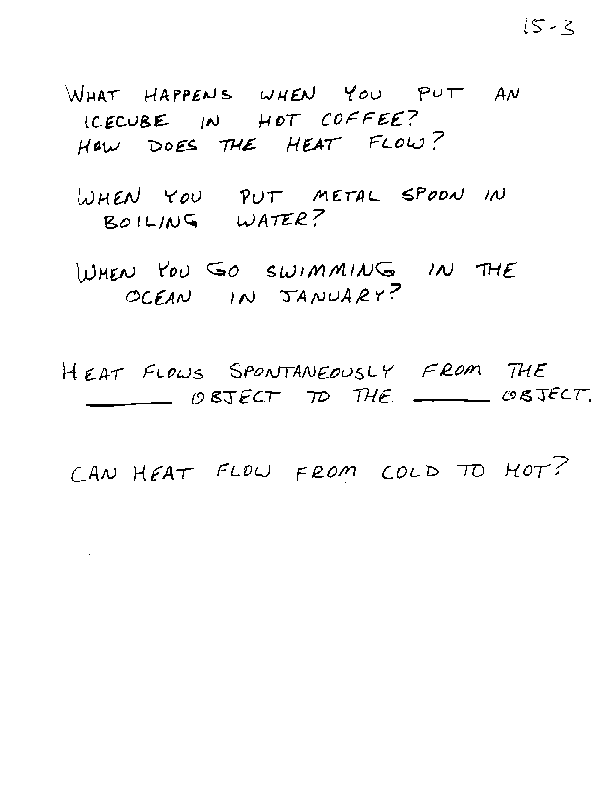 15-3
WHAT HAPPENS WHEN YOU PUT AN
ICECUBE IN HOT COFFEE?
HOW DOES THE HEAT FLOW?
WHEN YOU PUT METAL SPOON IN
BOILING WATER?
WHEN YOU GO SWIMMING IN THE
OCEAN IN JANUARY?
HEAT FLOWS SPONTANEOUSLY FROM THE
______ OBJECT TO THE ______ OBJECT.
CAN HEAT FLOW FROM COLD TO HOT?